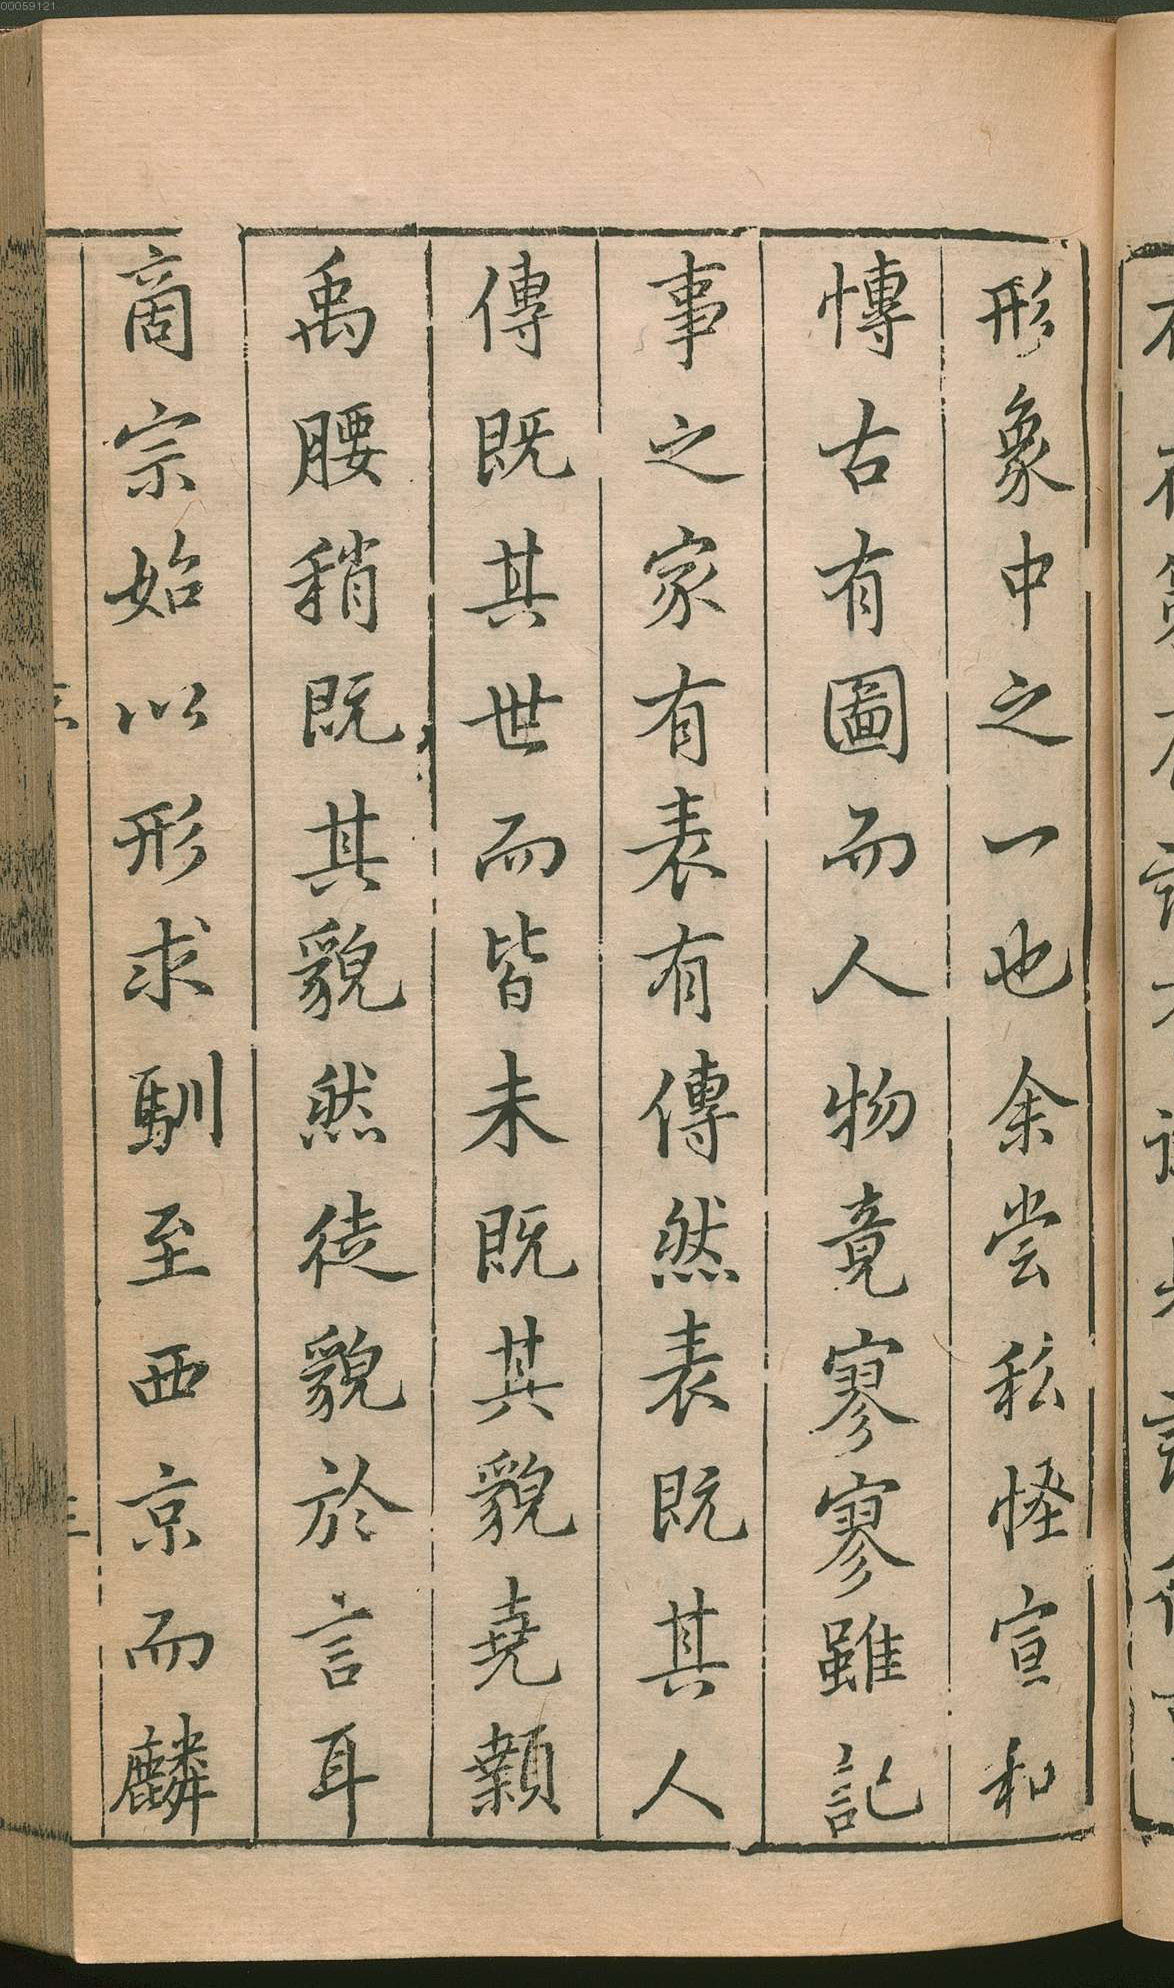 形象中之一也余尝私怪宣和
博古有圖而人物竟寥寥雖記
事之家有表有傳然表既其人
傳既其世而皆未既其貌堯顙
禹腰稍既其貌然徒貌於言耳
商宗始以形求馴至西京而麟
00059121